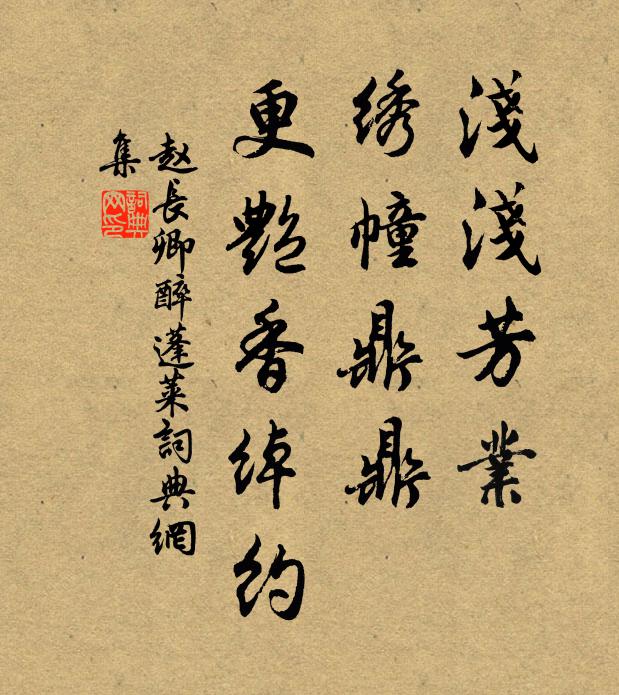 淺淺芳業
绣幢鼎鼎
更艷香绰约
赵長卿醉蓬莱詞典網
集
詞典
网印